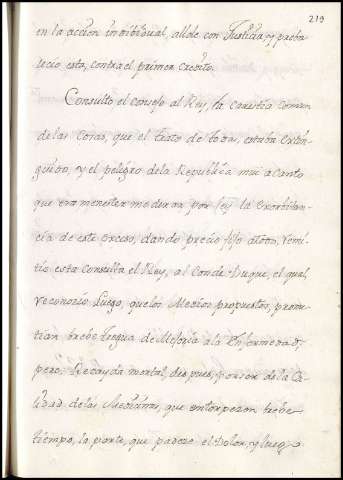 219
en la accion individual, allole con Justicia, y preba-
lecio, esto, contra el primer credito.
Consulto el consejo al Rey, la carestia comun
de las Cosas, que el trato de todas, estaba extin-
guido, y el peligro dela Republica mui acanto
que era menester moderar por ley la Exorbitan-
cia de este exceso, dando precio fijo atodo, remi-
tio esta Consulta el Rey, al Conde-Duque, el qual
reconocio Luego, quelos Medios propuestos, prome-
tian brebe tregua de Mejoria ala Enfermedad,
pero, Recayda mortal, despues, por ser de la Ca-
lidad de las Medicinas, que entorpezen brebe
tiempo, la parte, que padeze el Dolor, y luego